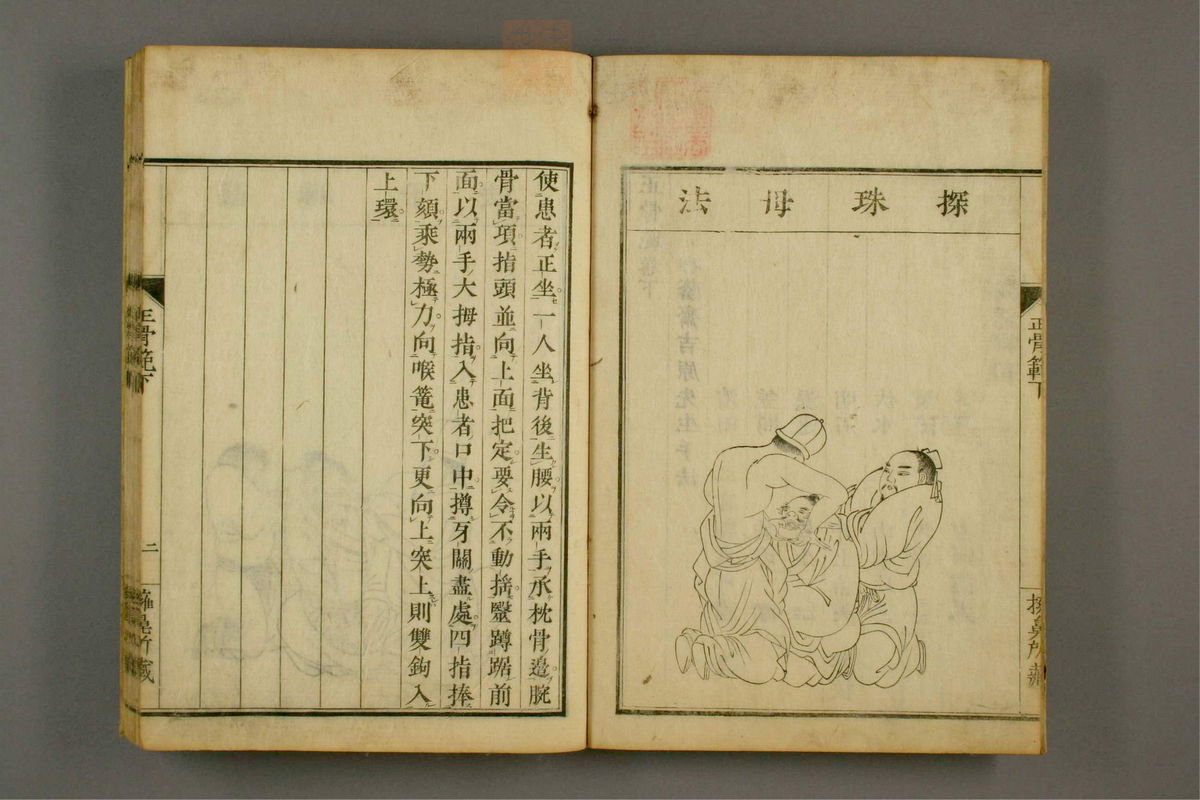 探珠母法
正骨範下
使患者正坐一人坐背後生腰以兩手承枕骨邉腕
骨當項指頭並向上面把定要令不動揺毉蹲踞前
面以兩手大拇指入患者口中撙牙關盡處四指捧
下頦乘勢極力向喉篭突下更向上突上則雙鉤入
上環
正骨範下
二